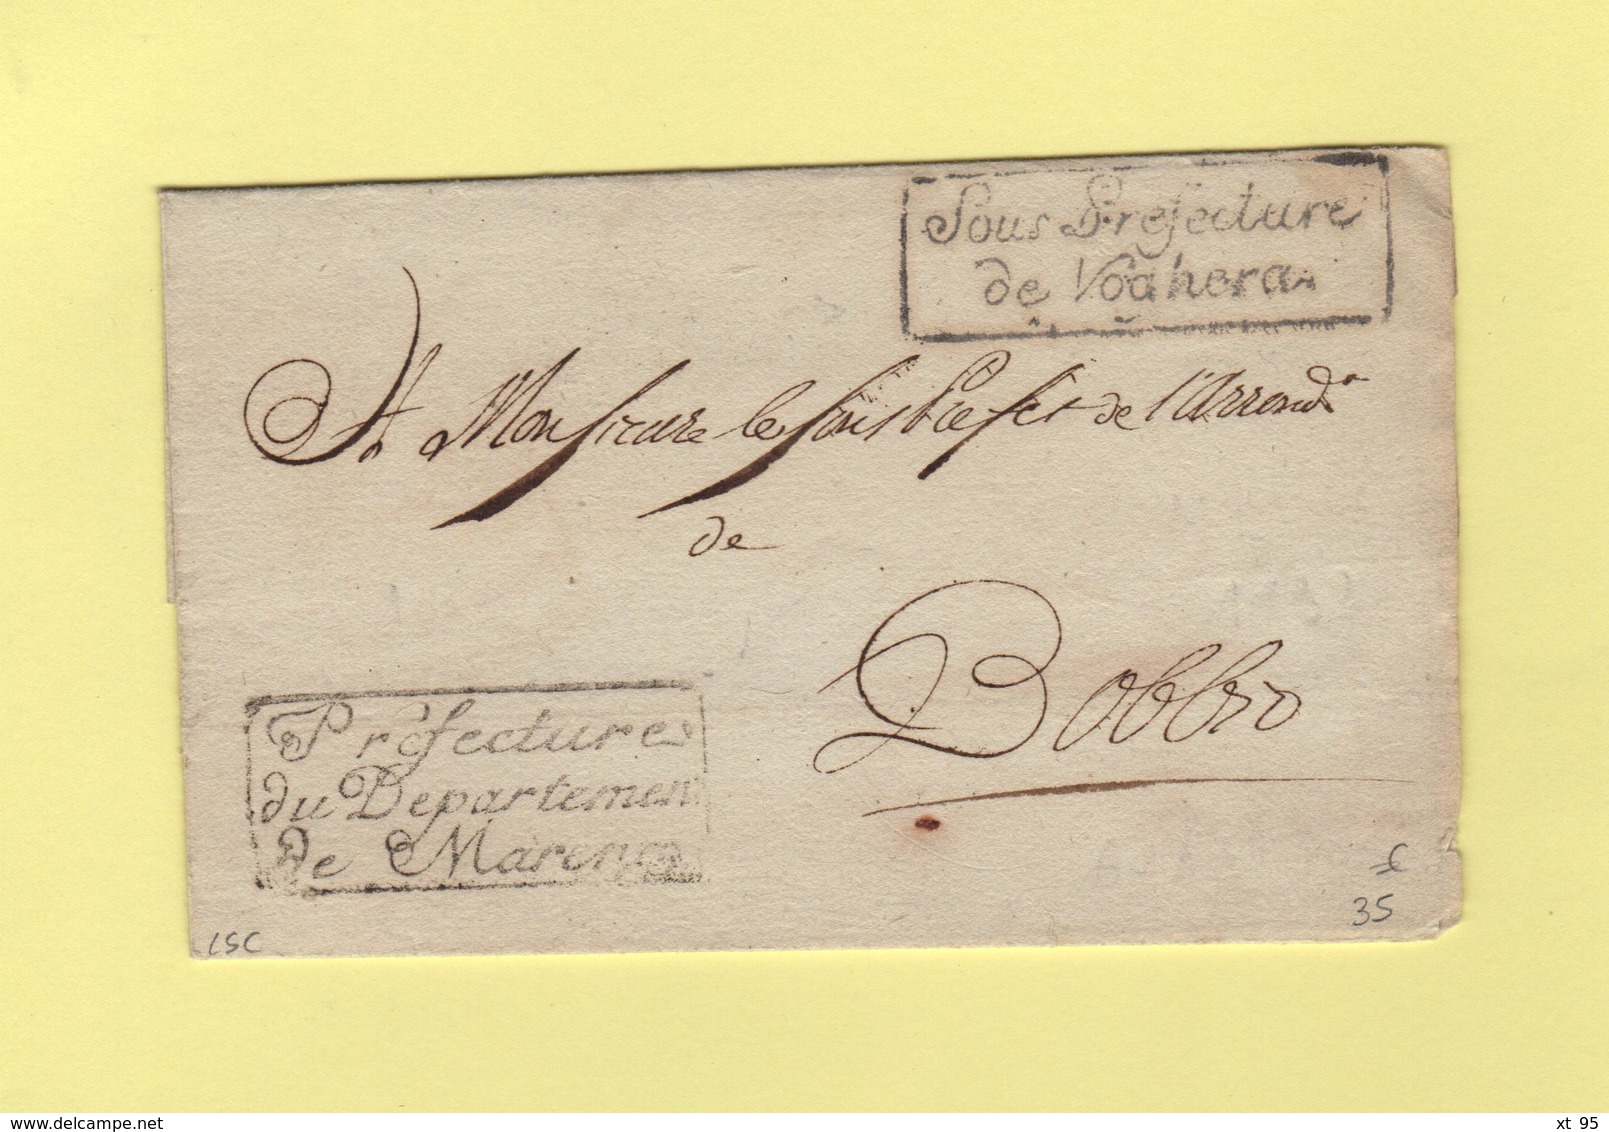 Sous Prefecture
de Voghera
A Monsieur le Sous Prefet de l'Arrond.
de
Bobbio
Préfecture
du Departement
de Marengo
LSC
35
www.delcampe.net
xt 95